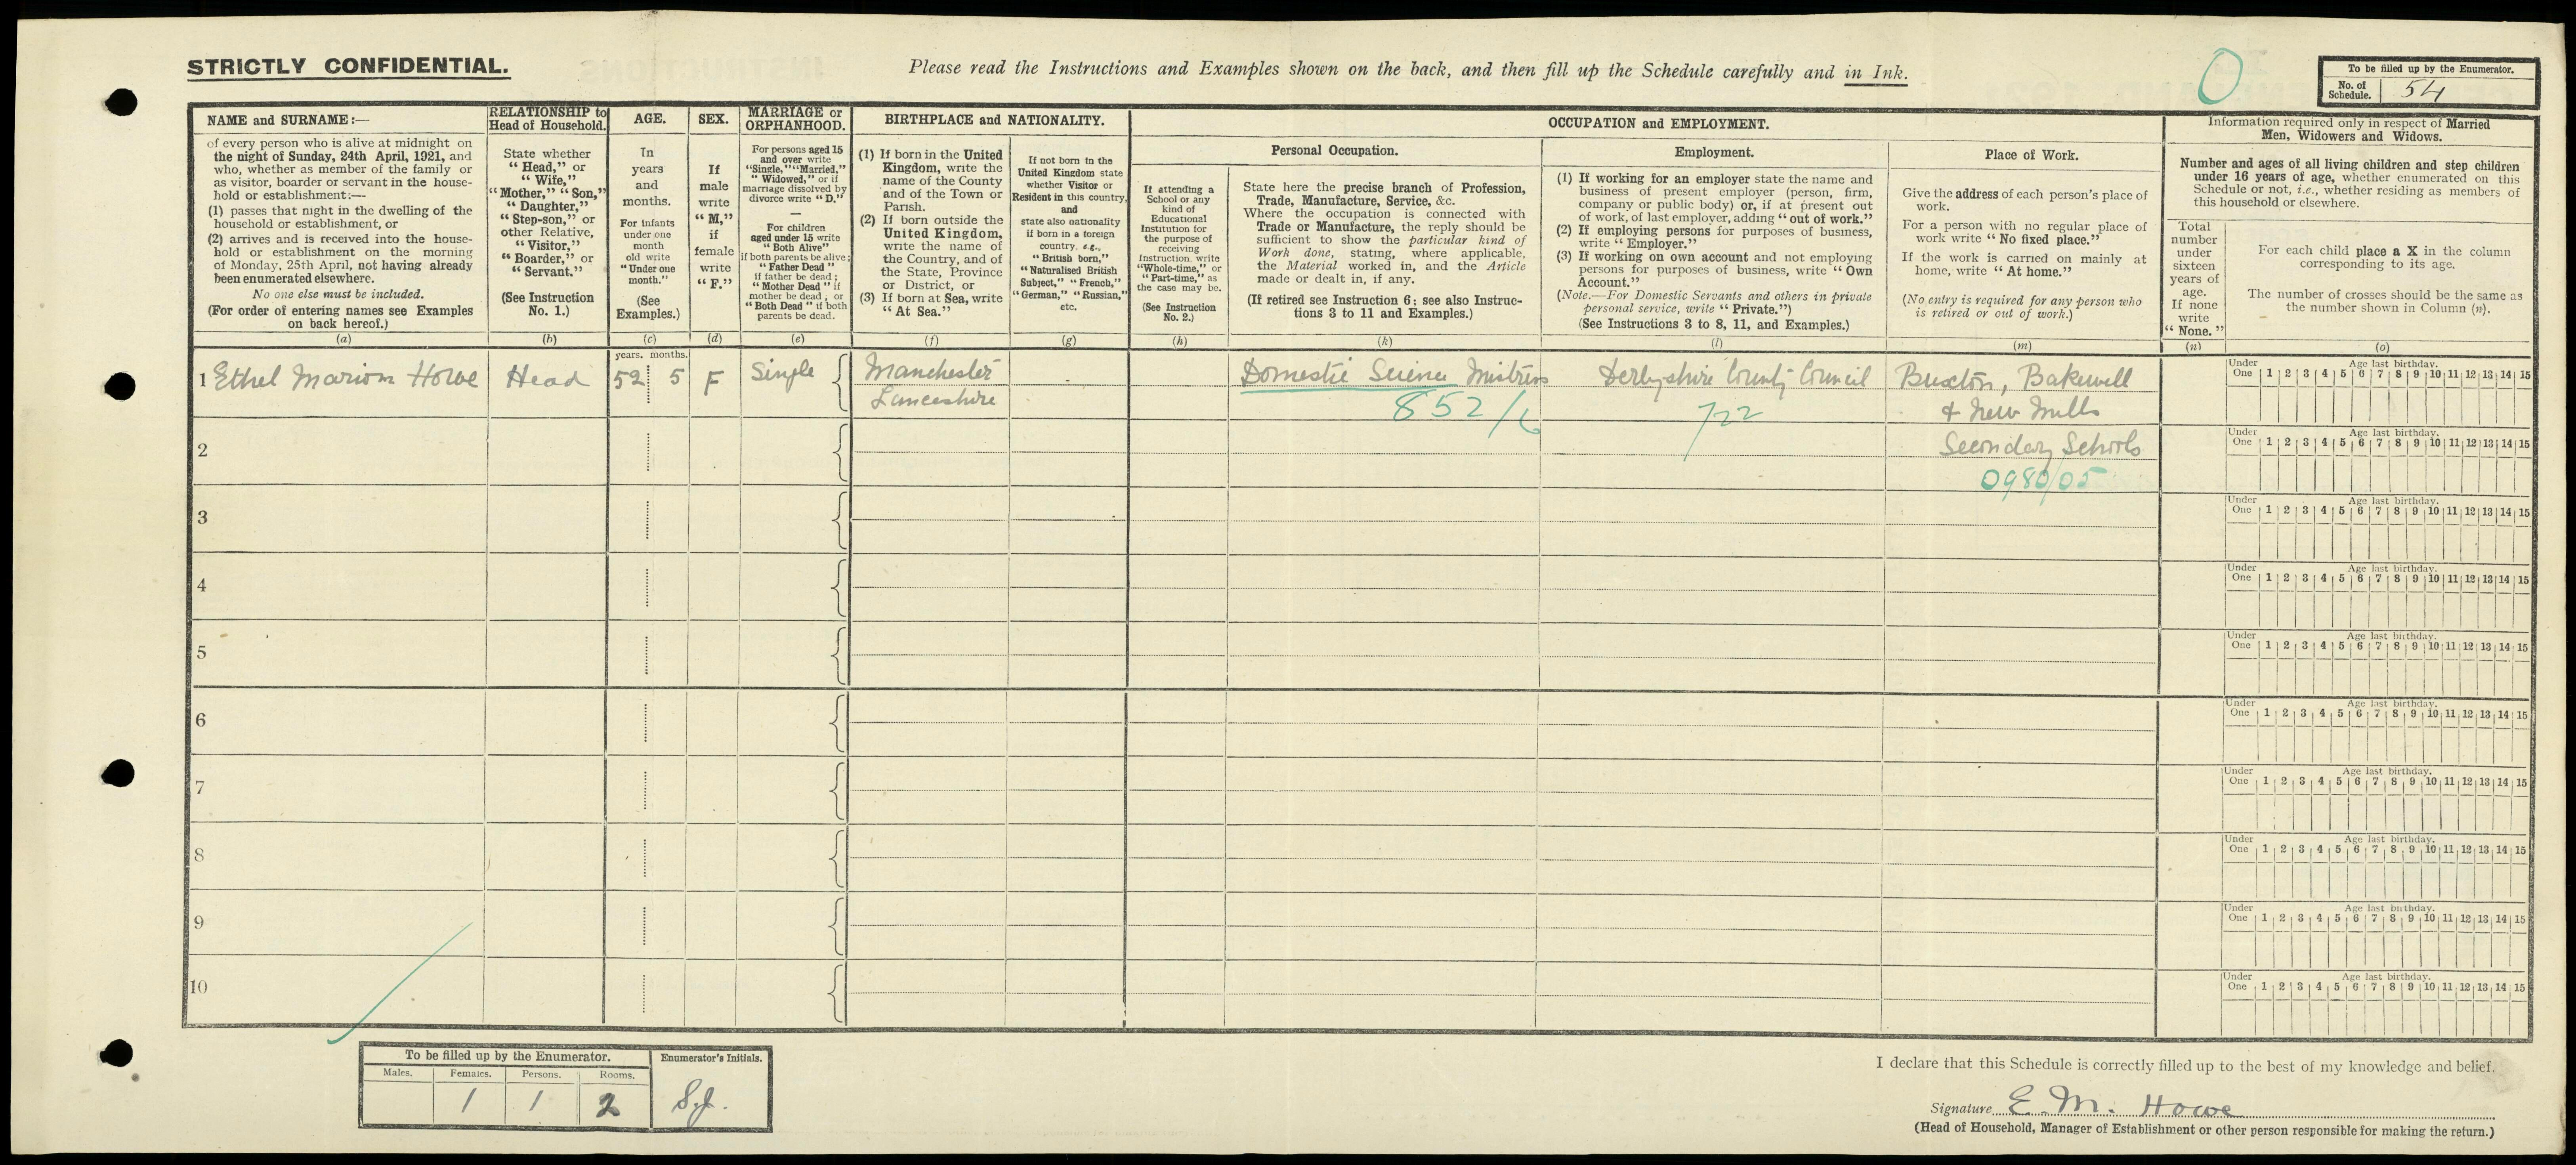 STRICTLY CONFIDENTIAL.
Please read the Instructions and Examples shown on the back, and then fill up the Schedule carefully and in Ink.
0
To be filled up by the Enumerator.
No. of Schedule. 54
NAME and SURNAME:—
of every person who is alive at midnight on
the night of Sunday, 24th April, 1921, and
who, whether as member of the family or
as visitor, boarder or servant in the house-
hold or establishment:—
(1) passes that night in the dwelling of the
household or establishment, or
(2) arrives and is received into the house-
hold or establishment on the morning
of Monday, 25th April, not having already
been enumerated elsewhere.
No one else must be included.
(For order of entering names see Examples
on back hereof.)
(a)
RELATIONSHIP to
Head of Household.
State whether
"Head," or
"Wife,"
"Mother," "Son,"
"Daughter,"
"Step-son," or
other Relative,
"Visitor,"
"Boarder," or
"Servant."
(See Instruction
No. 1.)
(b)
AGE.
In
years
and
months.
For infants
under one
month
old write
"Under one
month."
(See
Examples.)
(c)
SEX.
If
male
write
"M,"
if
female
write
"F."
(d)
MARRIAGE or
ORPHANHOOD.
For persons aged 15
and over write
"Single," "Married,"
"Widowed," or if
marriage dissolved by
divorce write "D."
—
For children
aged under 15 write
"Both Alive"
if both parents be alive;
"Father Dead"
if father be dead;
"Mother Dead" if
mother be dead; or
"Both Dead" if both
parents be dead.
(e)
BIRTHPLACE and NATIONALITY.
(1) If born in the United
Kingdom, write the
name of the County
and of the Town or
Parish.
(2) If born outside the
United Kingdom,
write the name of
the Country, and of
the State, Province
or District, or
(3) If born at Sea, write
"At Sea."
(f)
If not born in the
United Kingdom state
whether Visitor or
Resident in this country,
and
state also nationality
if born in a foreign
country, e.g.,
"British born,"
"Naturalised British
Subject," "French,"
"German," "Russian,"
etc.
(g)
OCCUPATION and EMPLOYMENT.
Personal Occupation.
If attending a
School or any
kind of
Educational
Institution for
the purpose of
receiving
Instruction write
"Whole-time," or
"Part-time," as
the case may be.
(See Instruction
No. 2.)
(h)
State here the precise branch of Profession,
Trade, Manufacture, Service, &c.
Where the occupation is connected with
Trade or Manufacture, the reply should be
sufficient to show the particular kind of
Work done, stating, where applicable,
the Material worked in, and the Article
made or dealt in, if any.
(If retired see Instruction 6; see also Instruc-
tions 3 to 11 and Examples.)
(k)
Employment.
(1) If working for an employer state the name and
business of present employer (person, firm,
company or public body) or, if at present out
of work, of last employer, adding "out of work."
(2) If employing persons for purposes of business,
write "Employer."
(3) If working on own account and not employing
persons for purposes of business, write "Own
Account."
(Note.—For Domestic Servants and others in private
personal service, write "Private.")
(See Instructions 3 to 8, 11, and Examples.)
(l)
Place of Work.
Give the address of each person's place of
work.
For a person with no regular place of
work write "No fixed place."
If the work is carried on mainly at
home, write "At home."
(No entry is required for any person who
is retired or out of work.)
(m)
Information required only in respect of Married
Men, Widowers and Widows.
Number and ages of all living children and step children
under 16 years of age, whether enumerated on this
Schedule or not, i.e., whether residing as members of
this household or elsewhere.
Total
number
under
sixteen
years of
age.
If none
write
"None."
(n)
For each child place a X in the column
corresponding to its age.
The number of crosses should be the same as
the number shown in Column (n).
(o)
years. months.
1 Ethel Marion Howe Head 52 5 F Single Manchester - - Domestic Science Mistress Derbyshire County Council Buxton, Bakewell
Lancashire 852/6 722 & New Mills
Secondary Schools
0980/05
Under One Age last birthday. 1 2 3 4 5 6 7 8 9 10 11 12 13 14 15
2
Under One Age last birthday. 1 2 3 4 5 6 7 8 9 10 11 12 13 14 15
3
Under One Age last birthday. 1 2 3 4 5 6 7 8 9 10 11 12 13 14 15
4
Under One Age last birthday. 1 2 3 4 5 6 7 8 9 10 11 12 13 14 15
5
Under One Age last birthday. 1 2 3 4 5 6 7 8 9 10 11 12 13 14 15
6
Under One Age last birthday. 1 2 3 4 5 6 7 8 9 10 11 12 13 14 15
7
Under One Age last birthday. 1 2 3 4 5 6 7 8 9 10 11 12 13 14 15
8
Under One Age last birthday. 1 2 3 4 5 6 7 8 9 10 11 12 13 14 15
9
Under One Age last birthday. 1 2 3 4 5 6 7 8 9 10 11 12 13 14 15
10
Under One Age last birthday. 1 2 3 4 5 6 7 8 9 10 11 12 13 14 15
To be filled up by the Enumerator.
Males. Females. Persons. Rooms.
1 1 2
Enumerator's Initials.
S.J.
I declare that this Schedule is correctly filled up to the best of my knowledge and belief.
Signature E. M. Howe
(Head of Household, Manager of Establishment or other person responsible for making the return.)